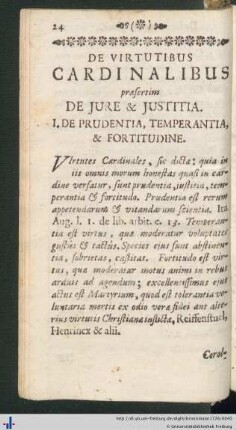 24
DE VIRTUTIBUS
CARDINALIBUS
præsertim
DE JURE & JUSTITIA.
I. DE PRUDENTIA, TEMPERANTIA,
& FORTITUDINE.
Virtutes Cardinales, sic dictæ: quia in
iis omnis morum honestas quasi in car-
dine versatur, sunt prudentia, justitia, tem-
perantia & fortitudo. Prudentia est rerum
appetendarum & vitandarum scientia. Ita
Aug. l. 1. de lib. arbit. c. 13. Temperan-
tia est virtus, quæ moderatur voluptates
gustûs & tactûs. Species ejus sunt abstinen-
tia, sobrietas, castitas. Fortitudo est vir-
tus, quæ moderatur motus animi in rebus
arduis ad agendum; excellentissimus ejus
actus est Martyrium, quod est tolerantia vo-
luntaria mortis ex odio veræ fidei aut alte-
rius virtutis Christianæ inflicta, Reiffenstuel,
Henrinex & alii.
Corol-
© Universitätsbibliothek Freiburg